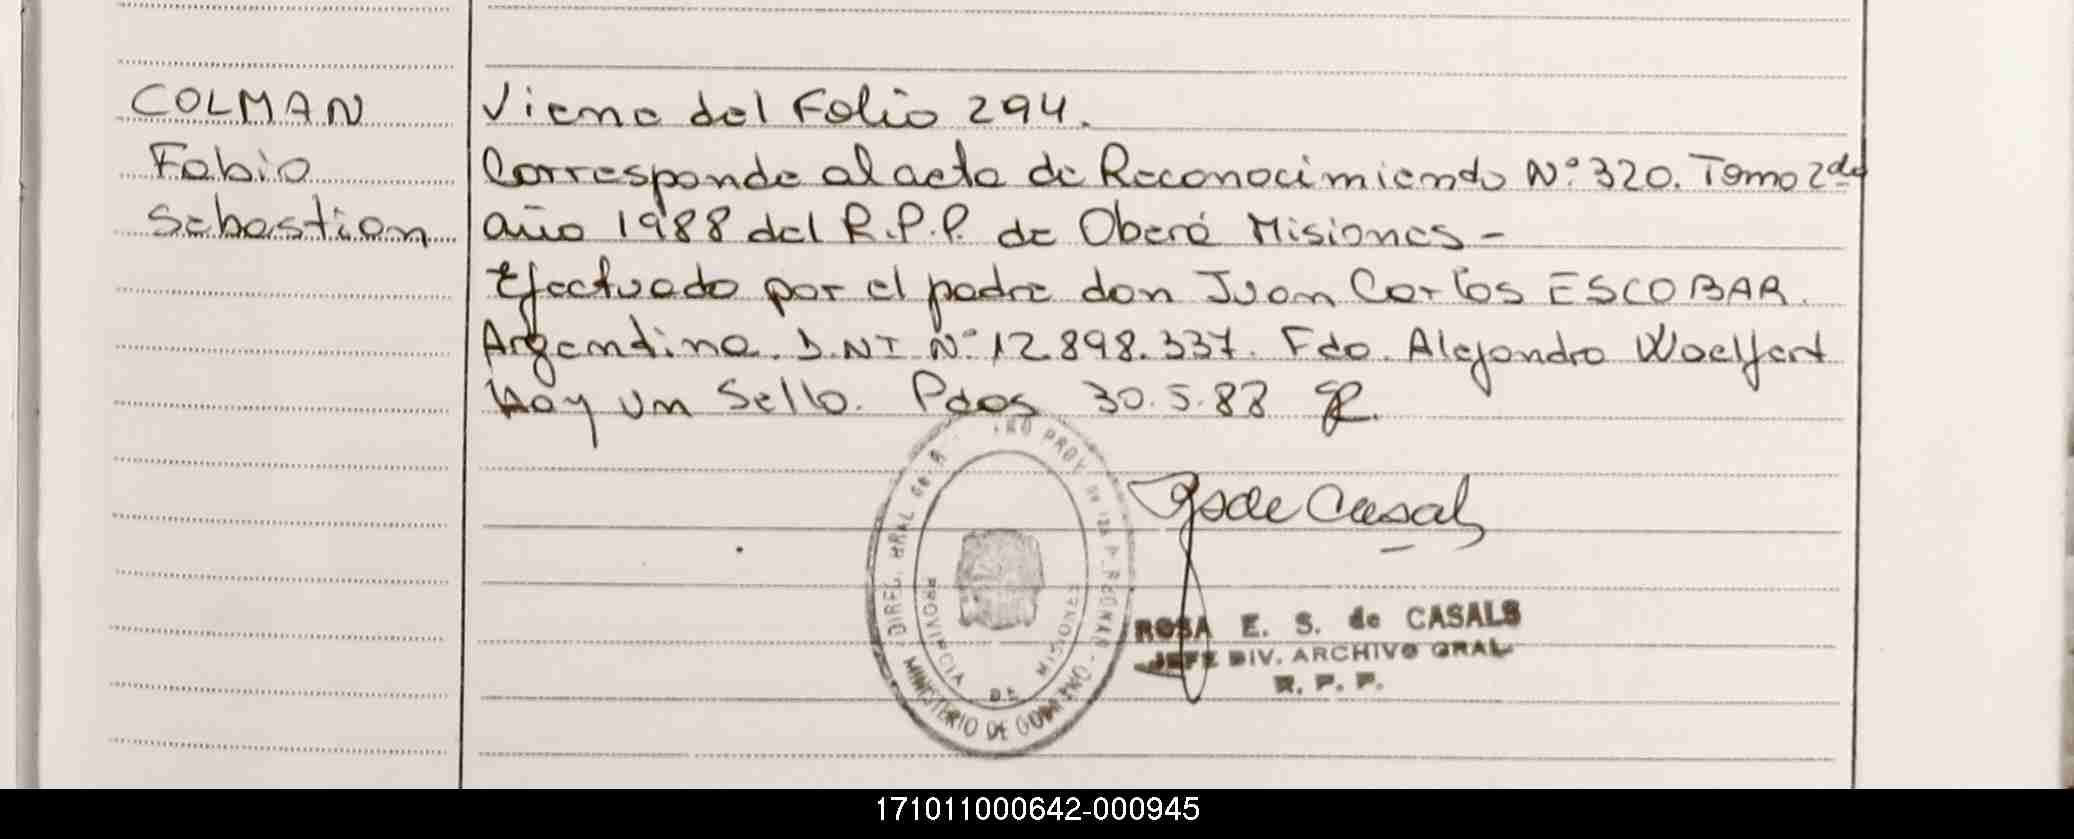 COLMAN
Fabio
Sebastian
Viene del Folio 294.
Corresponde al acta de Reconocimiento Nº 320. Tomo 2do
año 1988 del R.P.P. de Oberá Misiones -
Efectuado por el padre don Juan Carlos ESCOBAR.
Argentino. D.NI Nº 12.898.337. Fdo. Alejandro Woelfert
Hay un Sello. Pdas 30.5.88
RdeCasals
DIREC. GRAL DE PROV. DE LAS PERSONAS
PROVINCIA DE MISIONES
MINISTERIO DE GOBIERNO
ROSA E. S. de CASALS
JEFE DIV. ARCHIVO GRAL
R. P. P.
171011000642-000945